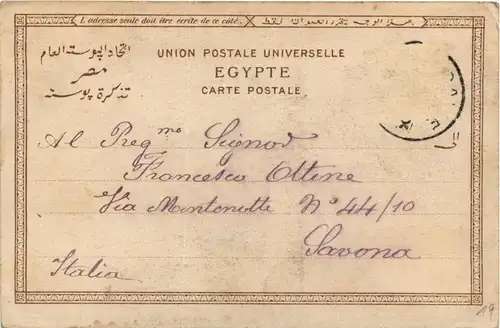 L'adresse seule doit être écrite de ce côté.
UNION POSTALE UNIVERSELLE
اتحاد البوستة العام
EGYPTE
مصر
CARTE POSTALE
تذكرة بوستة
الى
Al Preg.mo Signor
Francesco Ottine
Via Montonotte Nº 44/10
Savona
Italia